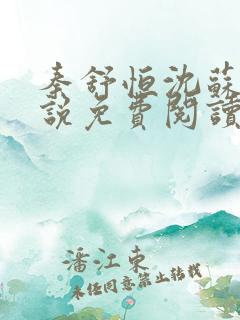 秦舒恒沈蘇
說免費閱讀
潘江東
未經同意禁止轉載